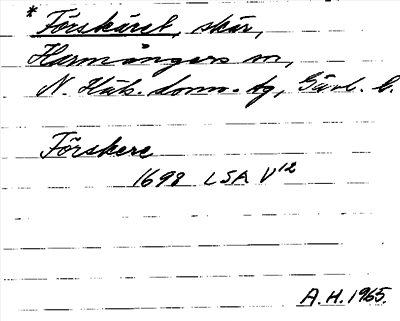 * Förskäret, skär,
Harmångers sn,
N. Häls. doms. tg, Gävl. l.
Förskere
1698 LSA V12
A.H. 1965